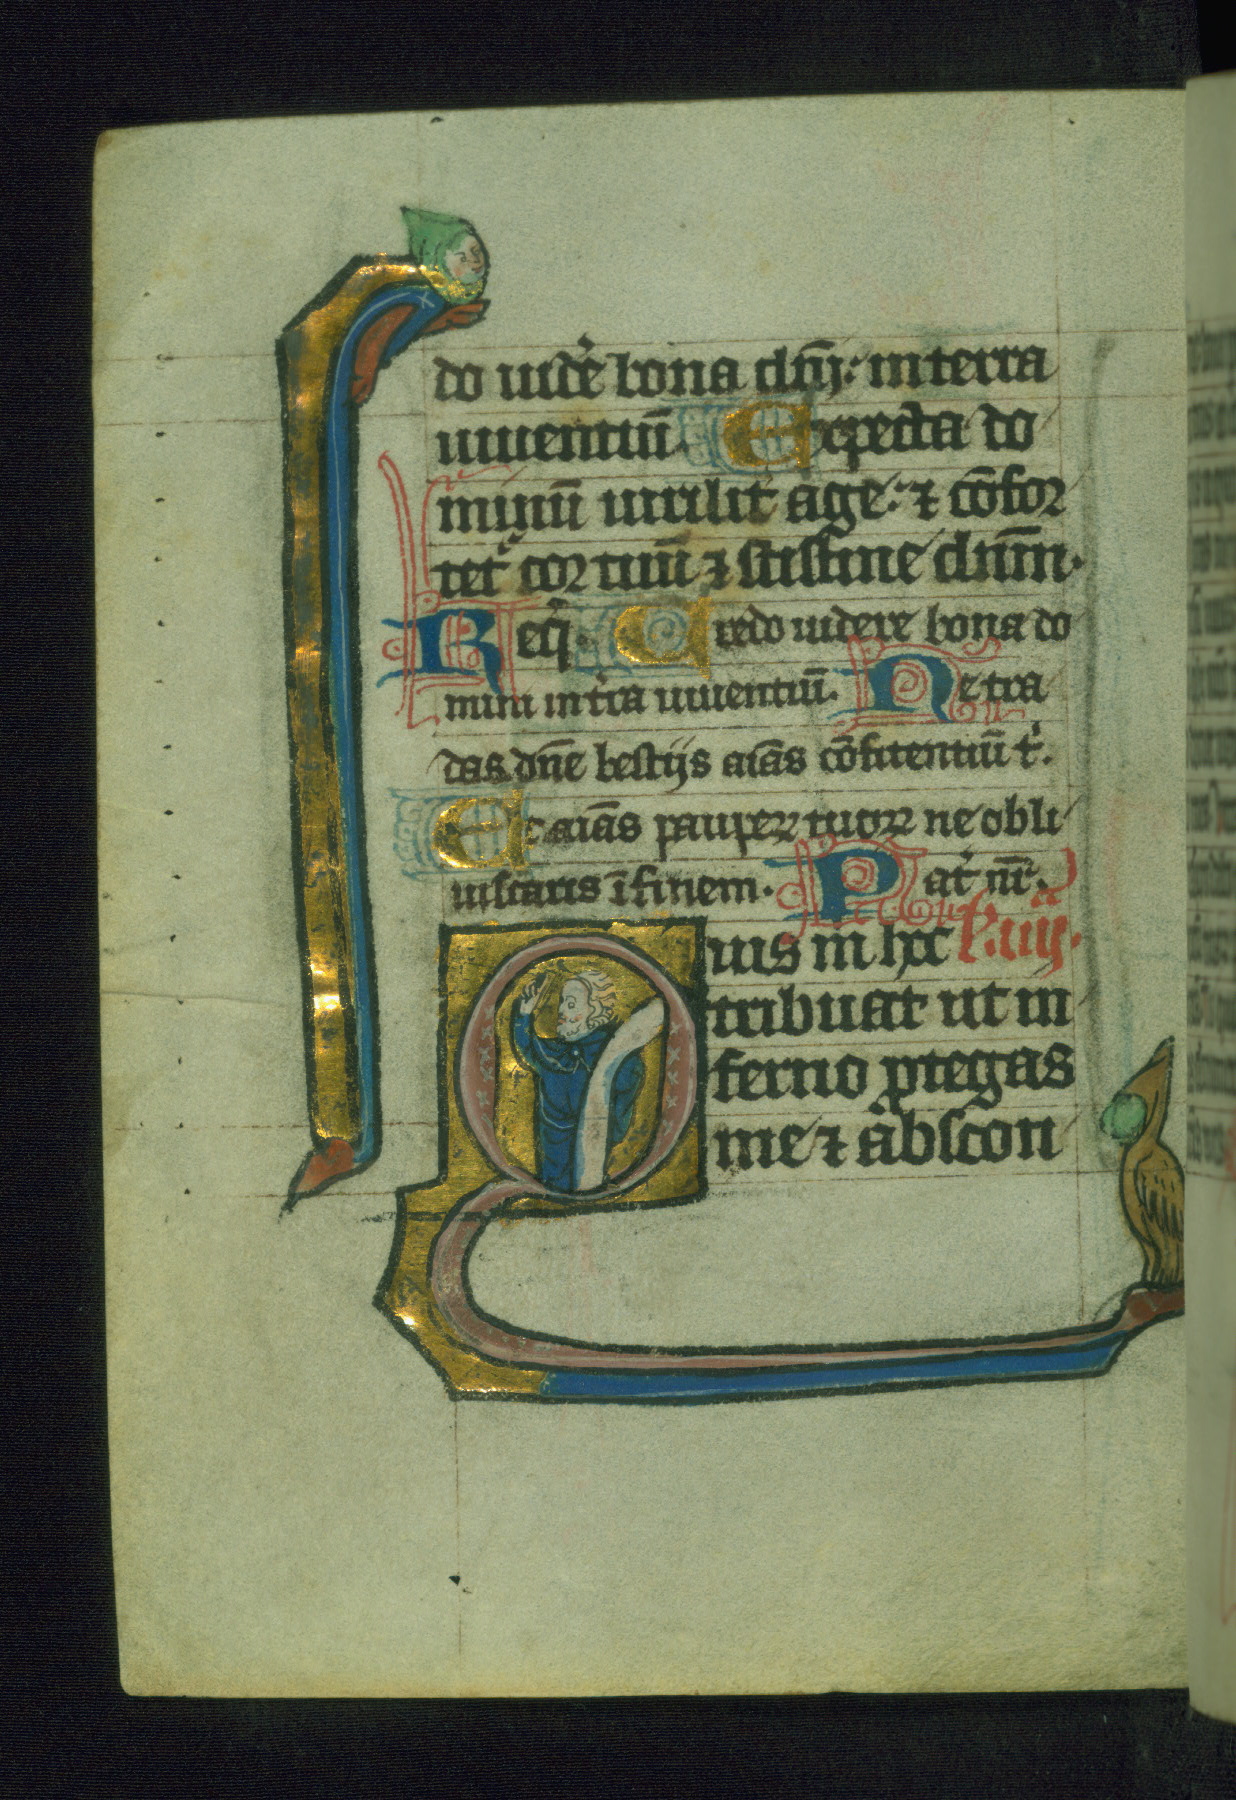 do uidē bona dn̄j: in terra
uiuentiū Expecta do
minū uirilit̄ age: ⁊ cōfor
tet᷑ cor tuū ⁊ sustine dn̄m.
Req̄. Credo uidere bona do
mini in tr̄a uiuentiū. Ne tra
das dn̄e bestijs aīas cōfitentiū t᷑.
Et aīas pauperꝝ tuoꝝ ne obli
uiscaris ī finem. Pat᷑ nr̄.
Quis m hoc
tribuat ut in
ferno ꝓtegas
me ⁊ abscon